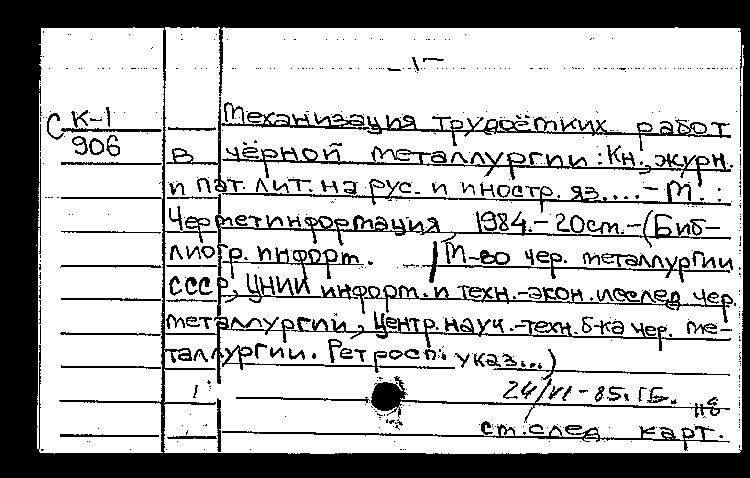 - 1 -
С К-1 Механизация трудоёмких работ
906 в чёрной металлургии: Кн., журн.
и пат. лит. на рус. и иностр. яз.... - М.:
Черметинформация, 1984. - 20 см. - (Биб-
лиогр. информ. / М-во чер. металлургии
СССР, ЦНИИ информ. и техн.-экон. исслед. чер.
металлургии, Центр. науч.-техн. б-ка чер. ме-
таллургии. Ретросп. указ...)
24/VI-85.
см. след карт.